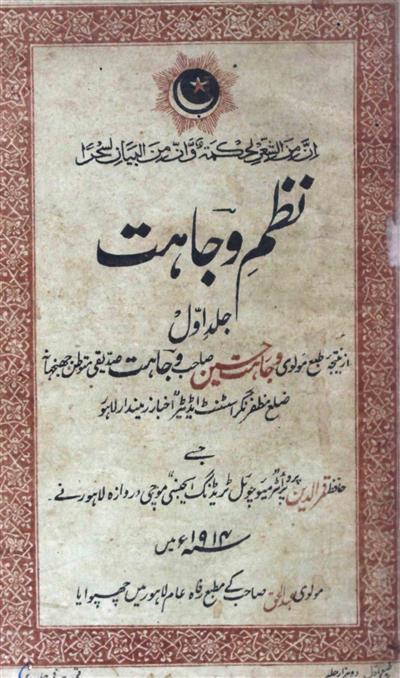 ان من الشعر لحکمۃ وان من البیان لسحرا
نظمِ وجاہت
جلد اوّل
از نتیجہ طبع مولوی وجاہت حسین صاحب وجاہت صدیقی متوطن جھنجھانہ
ضلع مظفر نگر اسسٹنٹ ایڈیٹر اخبار زمیندار لاہور
جسے
حافظ قمر الدین پروپرائٹر میوچوئل ٹریڈنگ ایجنسی موچی دروازہ لاہور نے
سنہ ۱۹۱۴ء میں
مولوی عبدالحق صاحب کے مطبع رفاہ عام لاہور میں چھپوایا
دو ہزار جلد